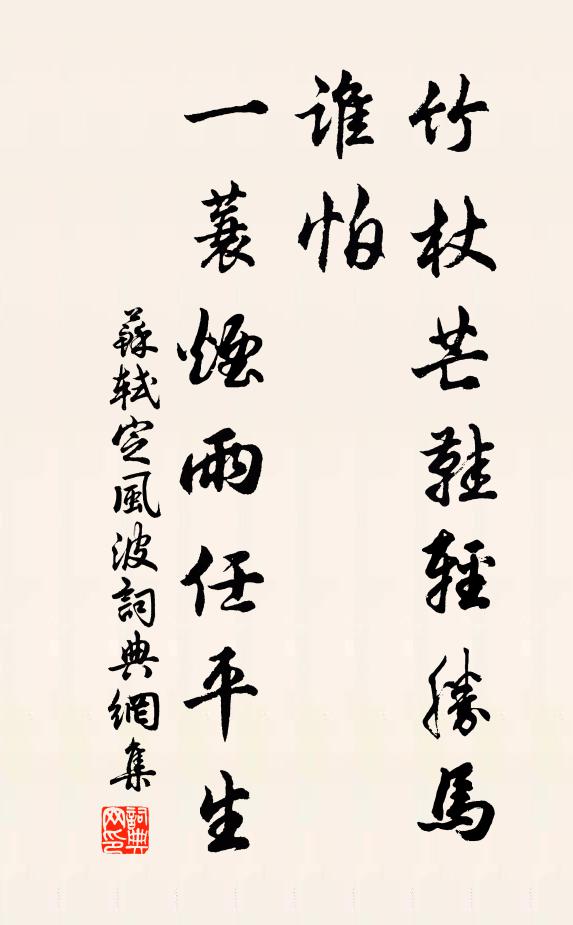 竹杖芒鞋輕勝馬
誰怕
一蓑煙雨任平生
蘇軾定風波詞典網集
詞典网印